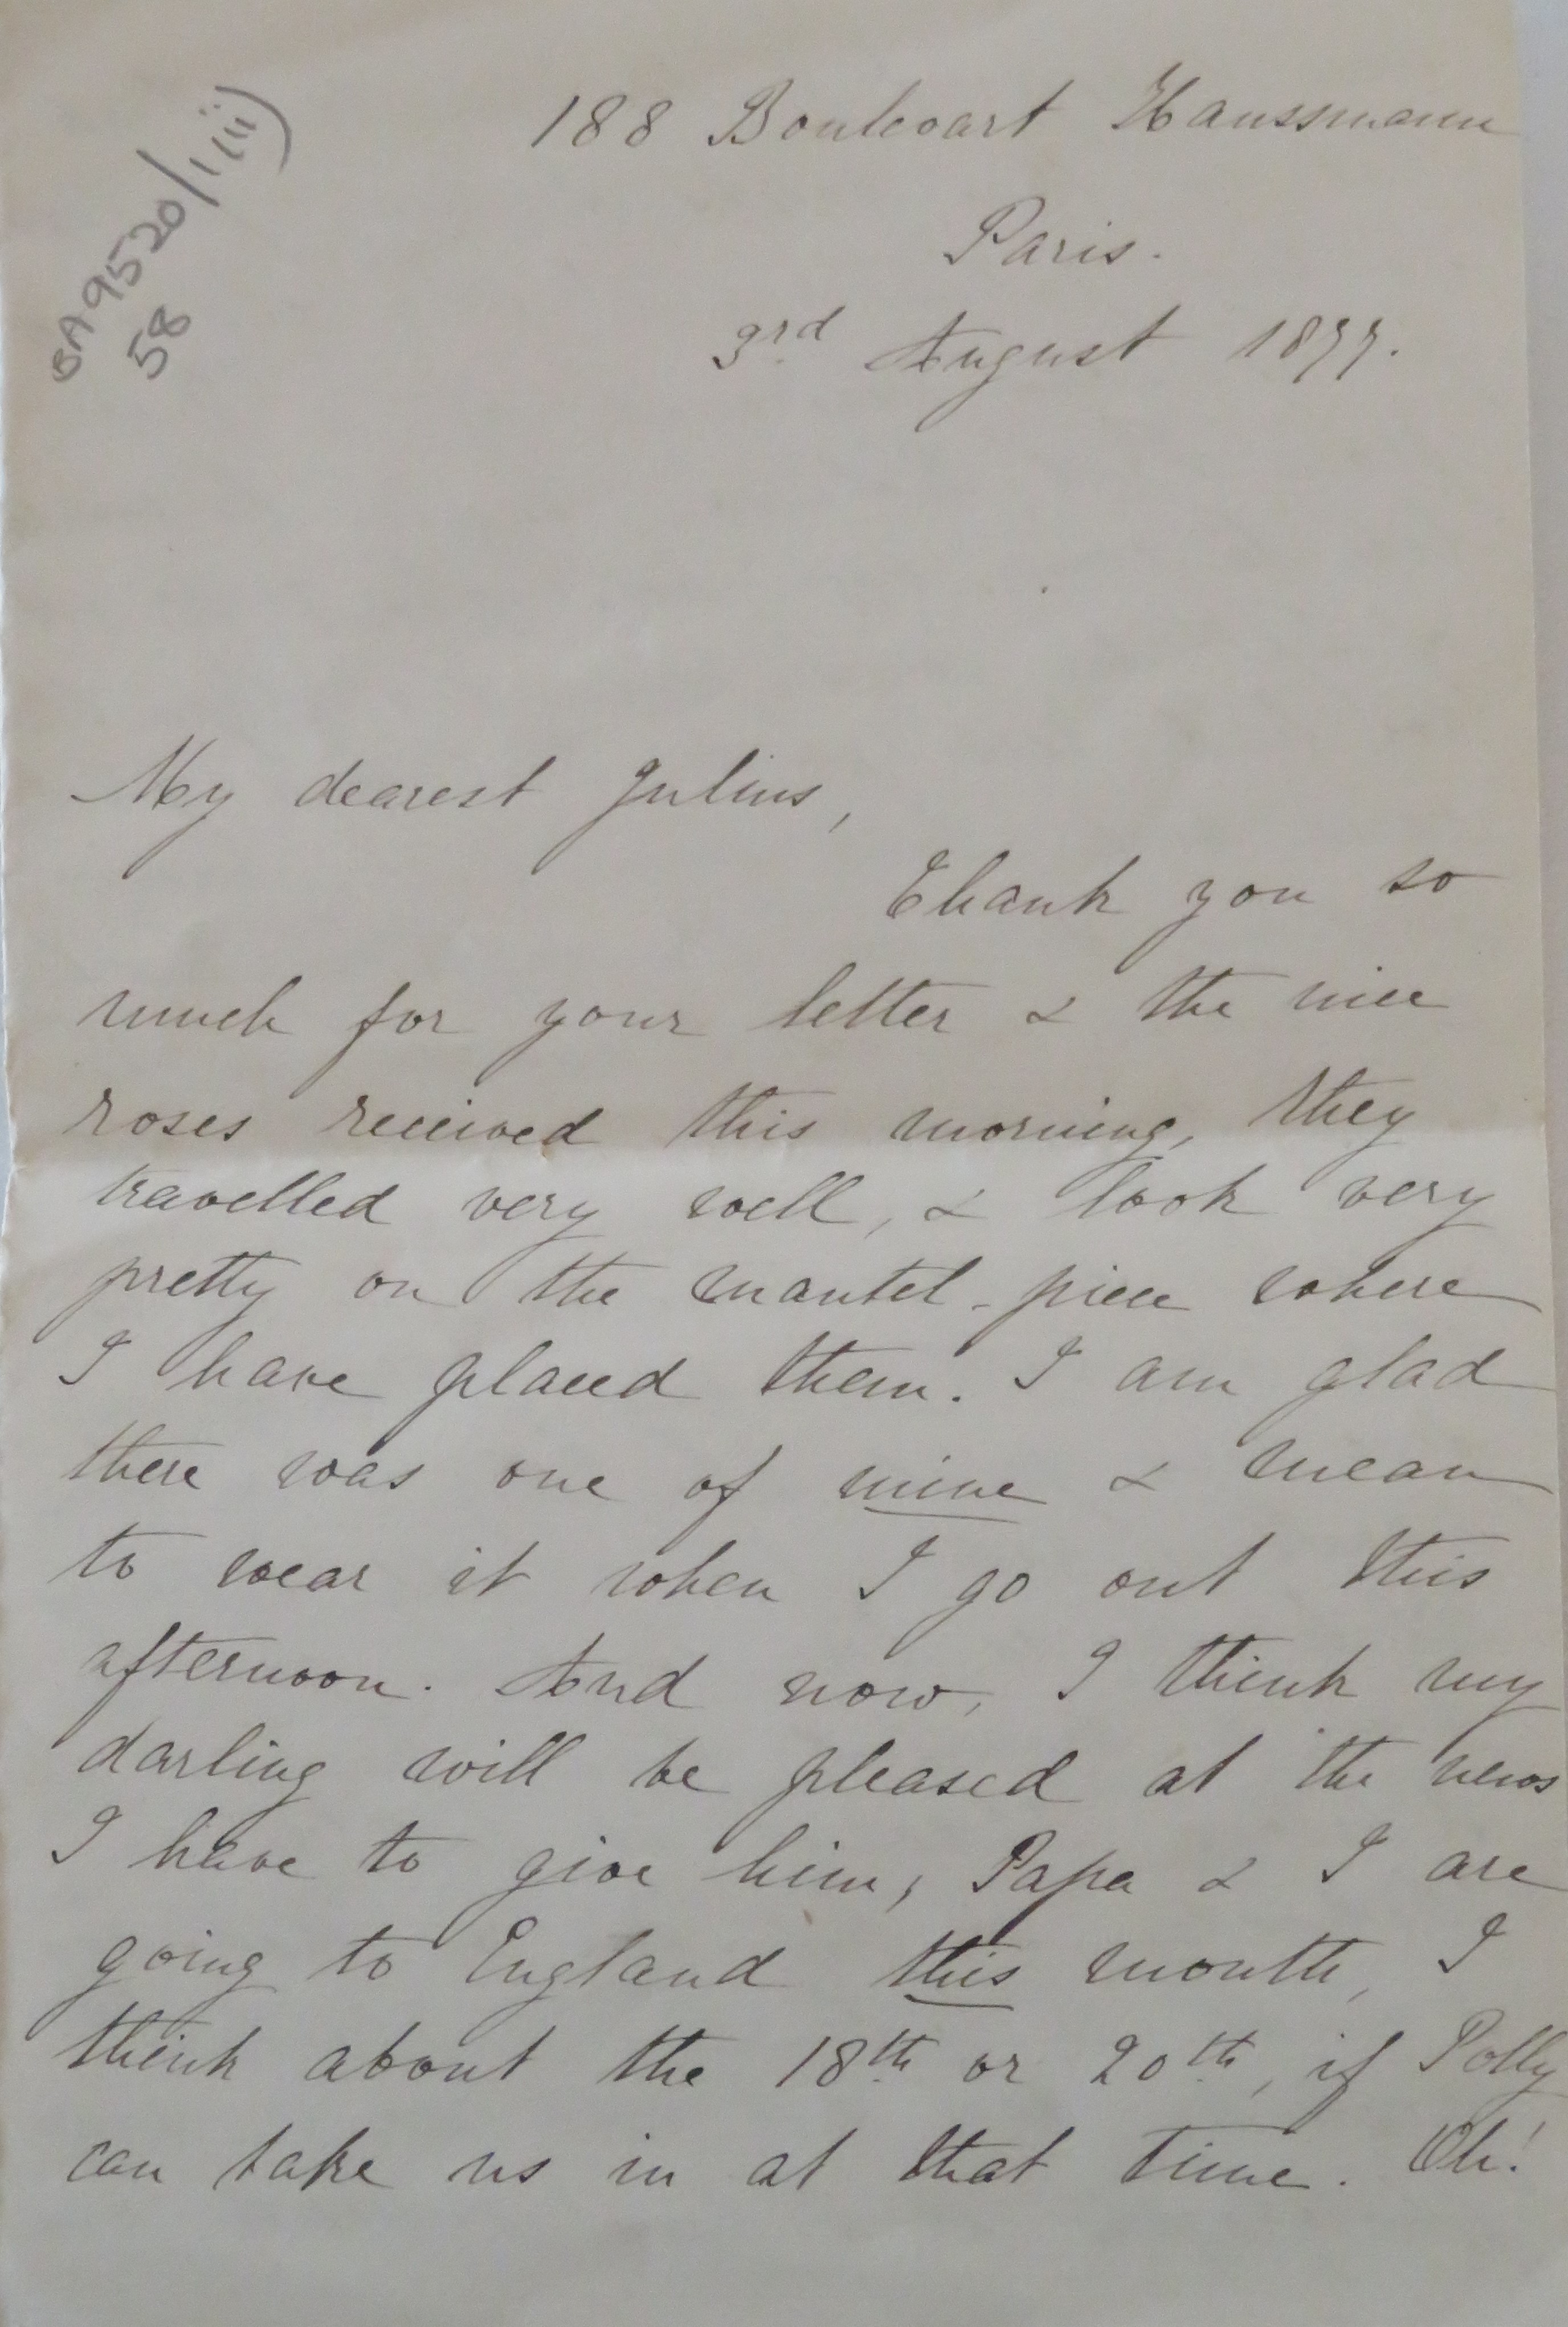 BA9520/1 iii)
58
188 Boulevart Haussmann
Paris.
3rd August 1877.
My dearest Julius,
Thank you so
much for your letter & the nice
roses received this morning, they
travelled very well, & look very
pretty on the mantel-piece where
I have placed them. I am glad
there was one of mine & mean
to wear it when I go out this
afternoon. And now, I think my
darling will be pleased at the news
I have to give him, Papa & I are
going to England this month, I
think about the 18th or 20th, if Polly
can take us in at that time. Oh!